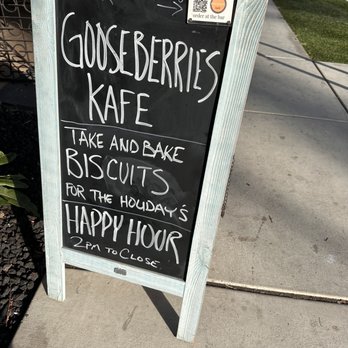 order at the bar
GOOSEBERRIES
KAFE
TAKE AND BAKE
BISCUITS
FOR THE HOLIDAY'S
HAPPY HOUR
2PM TO CLOSE